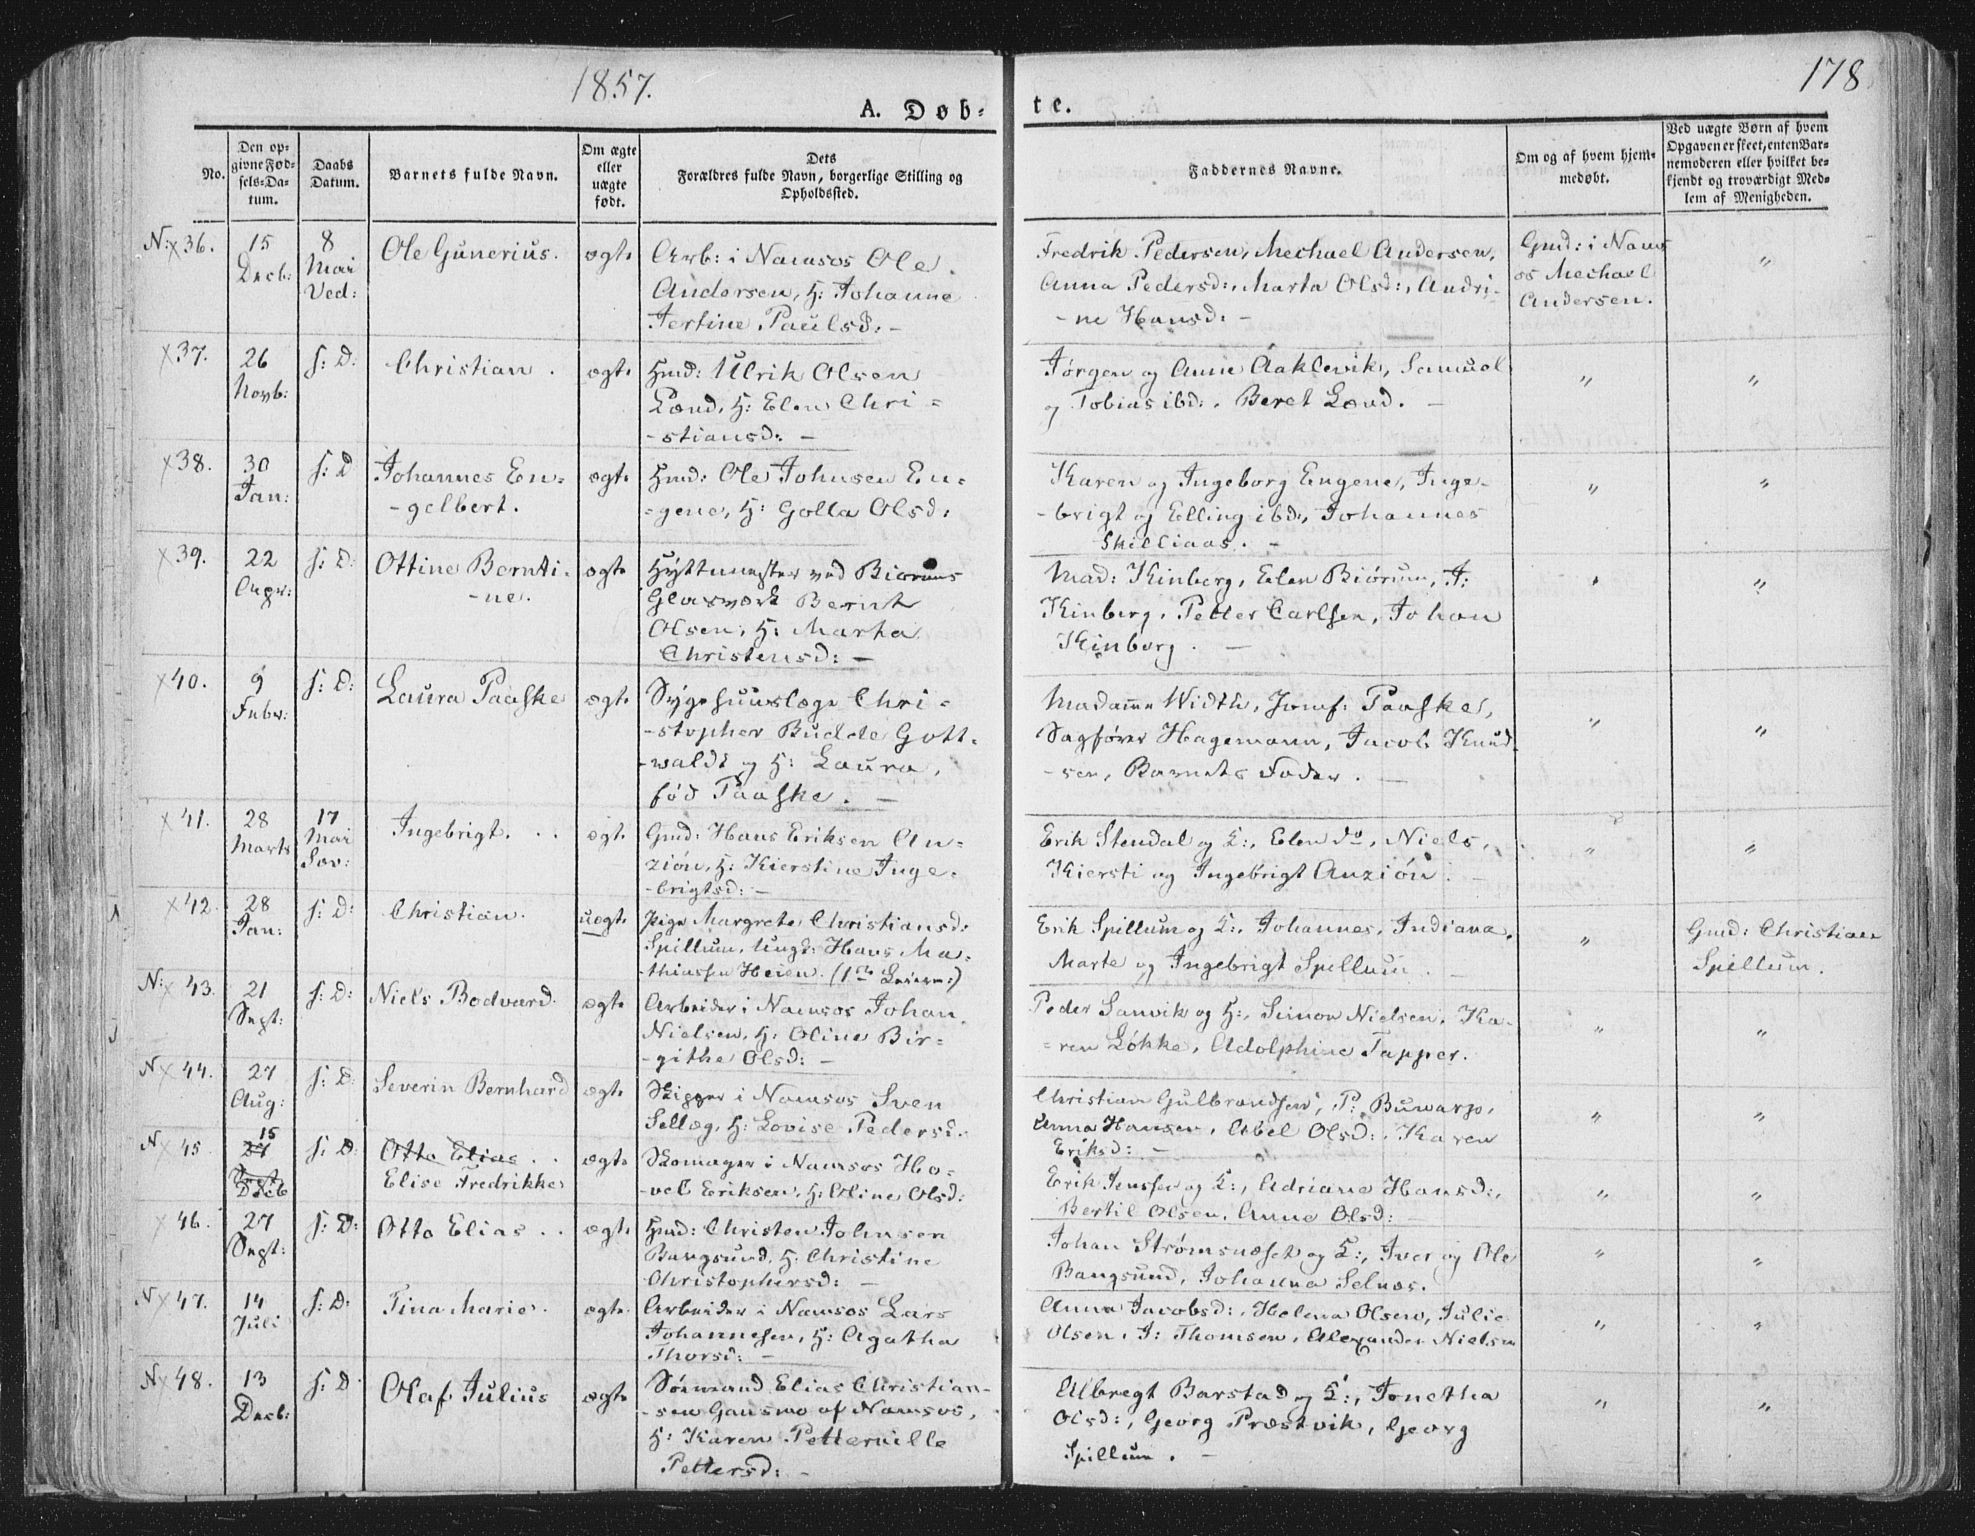 1857.
178
A. Døb-
te.
No.
Den op-
givne Fød-
sels-Da-
tum.
Daabs
Datum.
Barnets fulde Navn.
Om ægte
eller
uægte
født.
Dets
Forældres fulde Navn, borgerlige Stilling og
Opholdssted.
Faddernes Navne.
Om og af hvem hjem-
medøbt.
Ved uægte Børn af hvem
Opgaven er skeet, enten Bar-
nemoderen eller hvilket be-
kjendt og troværdigt Med-
lem af Menigheden.
N: x 36.
15
Decb:
8
Mai
Ved:
Ole Gunerius.
ægte
Arb: i Namsos Ole
Andersen, H: Johanne
Jertine Paulsd: -
Fredrik Pedersen, Mechael Andersen,
Anna Pedersd:, Marta Olsd:, Andri-
-ne Hansd: -
Gmd: i Nams
os Mechael
Andersen.
"
x 37.
26
Novb:
s: D:
Christian.
ægte
Hmd: Ulrik Olsen
Lænd, H: Elen Chri-
-stiansd: -
Jørgen og Anne Aaklevik, Samuel
og Tobias ibd:, Beret Lænd. -
"
"
x 38.
30
Jan:
s: D
Johannes En-
-gelbert.
ægte
Hmd: Ole Johnsen En-
-gene, H: Golla Olsd:
Karen og Ingeborg Engene, Inge-
-brigt og Elling ibd:, Johannes
Skilliaas. -
"
"
x 39.
22
Capr:
s: D:
Ottine Bernti-
-ne.
ægte
Hyttemester ved Biørums
Glasværk Bernt
Olsen, H: Marta
Christensd: -
Mad: Kinberg, Elen Biørum, J:
Kinberg, Petter Carlsen, Johan
Kinberg. -
"
"
x 40.
9
Febr:
s: D:
Laura Paaske
ægte
Sygehuuslæge Chri-
-stopher Budde Gott-
-waldt og H: Laura,
fød Paaske. -
Madame Width, Jomf: Paaske,
Sagfører Hagemann, Jacob Knud-
-sen, Barnets Fader. -
"
"
x 41.
28
Marts
17
Mai
Søv:
Ingebrigt. . .
ægte
Gmd: Hans Eriksen An-
ziøn, H: Kierstine Inge-
-brigtsd: -
Erik Stendal og K:, Elen do, Niels,
Kiersti og Ingebrigt Anziøn. -
"
"
x 42.
28
Jan:
s: D:
Christian.
uægte
Pige Margrete Christiansd:
Spillum, Ungk: Hans Ma-
-thiassen Heien. (1ste Leierm:)
Erik Spillum og K:, Johannes, Indiana,
Marte og Ingebrigt Spillum. -
"
Gmd: Christian
Spillum.
N: x 43.
21
Sept:
s: D:
Niels Bodvard.
ægte
Arbeider i Namsos Johan
Nielsen, H: Oline Bir-
-githe Olsd: -
Peder Sanvik og H:, Simon Nielsen, Ka-
-ren Løkke, Adolphine Tapper.
"
"
N x 44.
27
Aug:
s: D:
Severin Bernhard
ægte
Skipper i Namsos Sven
Sellæg, H: Lovise Pedersd:
Christian Gulbrandsen, P: Buwarp,
Anna Hansen, Abel Olsd:, Karen
Eriksd: -
"
"
N x 45
15
27
Sept
Decb
s: D:
Otto Elias . .
Elise Fredrikke
ægte
Skomager i Namsos Ho-
-vel Eriksen, H: Oline Olsd:
Erik Jenssen og K:, Adriane Hansd:,
Bertil Olsen, Anne Olsd: -
"
"
x 46.
27
Sept:
s: D:
Otto Elias . .
ægte
Hmd: Christen Johnsen
Bangsund, H: Christine
Christophersd: -
Johan Strømsnæset og K:, Iver og Ole
Bangsund, Johanna Selnæs.
"
"
N x 47.
14
Juli
s: D:
Tina Marie.
ægte
Arbeider i Namsos Lars
Johannesen, H: Agatha
Thorsd: -
Anna Jacobsd:, Helena Olsen, Julie
Olsen, J: Thomsen, Alexander Nielsen
"
"
N x 48.
13
Decb:
s: D
Olaf Julius
ægte
Sømand Elias Christian-
-sen Gansmo af Namsos,
H: Karen Petternille
Pettersd: -
Albregt Barstad og K:, Jonetha
Olsd:, Georg Præstvik, Georg
Spillum. -
"
"